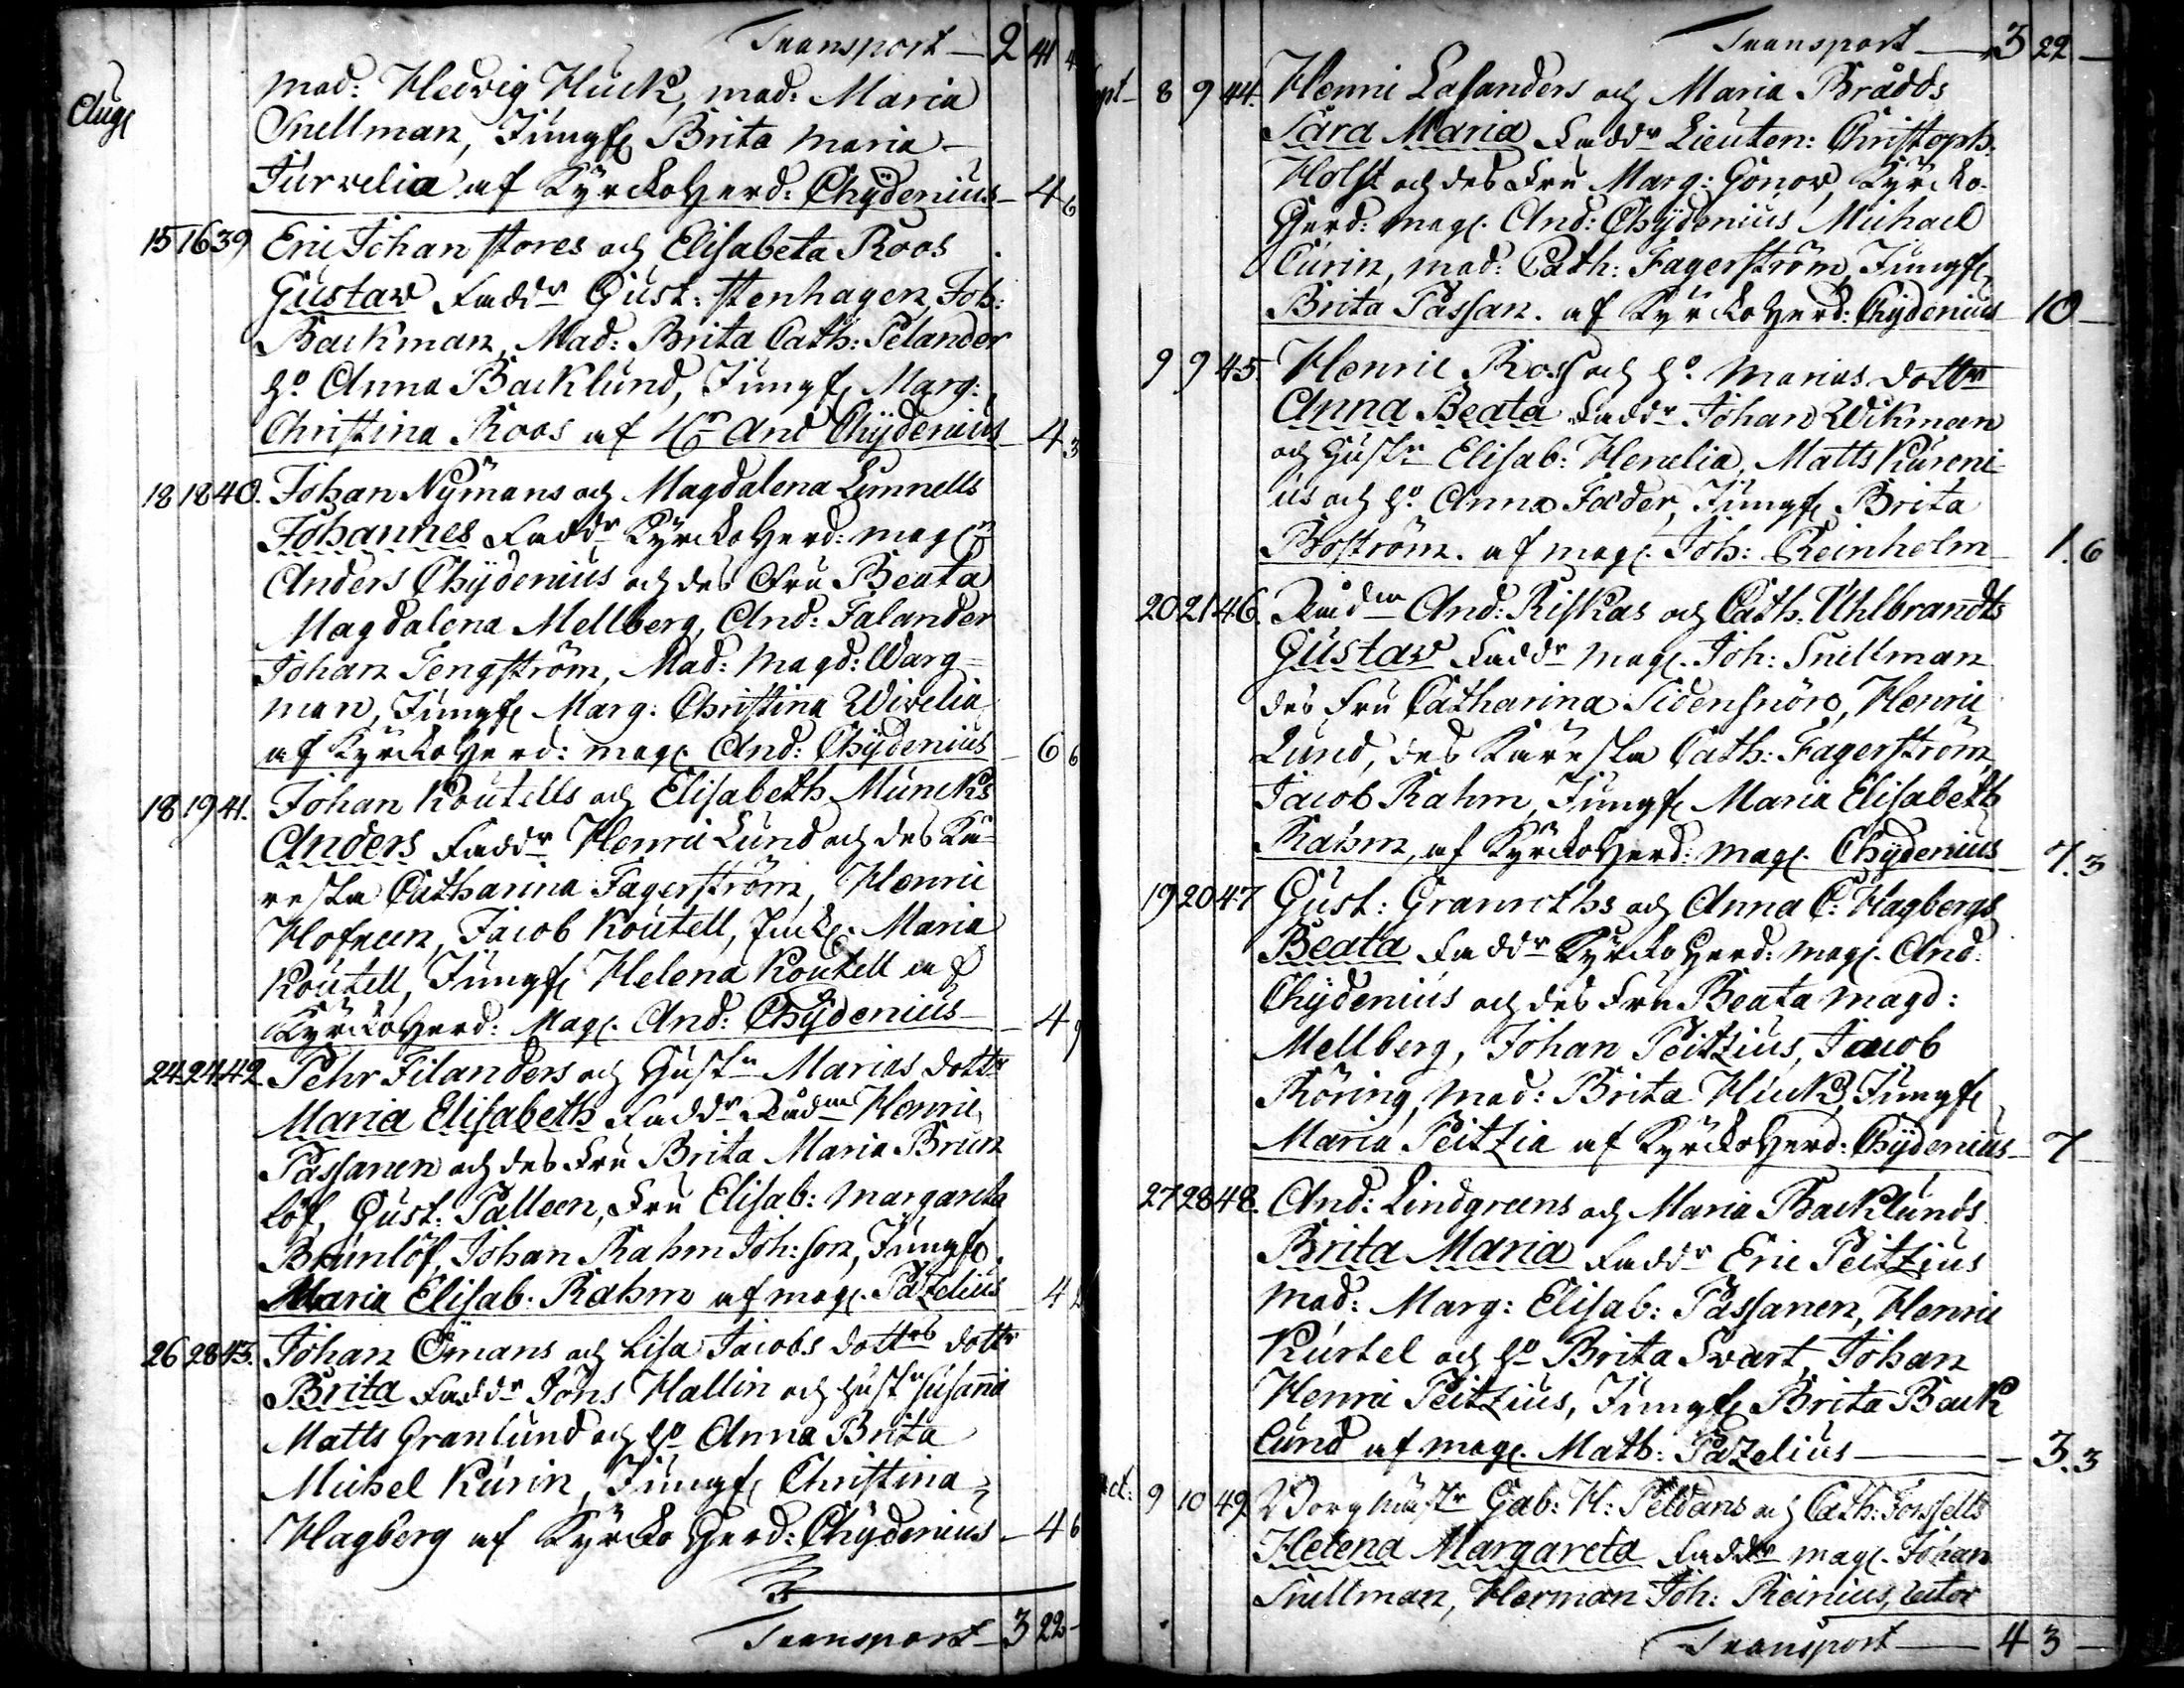 Transport — 2 41
Aug
Mad: Hedvig Huck, mad: Maria
Snellman, Jungf Brita Maria
Jurvelia af KyrckoHerd: Chydenius — 4 6
15 16 39 Eric Johan Stores och Elisabeta Roos
Gustav Fadd Gust: Stenhagen, Joh:
Backman, Mad: Brita Cath: Pelander
ho Anna Backlund, Jungf Marg:
Christina Roos af Hr And Chydenius — 4 3
18 18 40. Johan Nymans och Magdalena Limnells
Johannes Fadd KyrckoHerd: mag
Anders Chydenius och des Fru Beata
Magdalena Mellberg, And: Falander
Johan Tengström, Mad: Magd: Warg-
man, Jungf Marg: Christina Wivelia
af KyrckoHerd: mag And: Chydenius — 6 6
18 19 41. Johan Koutells och Elisabeth Muncks
Anders Fadd Henric Lund och des Kä-
resta Catharina Fagerström, Henric
Hofreen, Jacob Koutell, Maria
Koutell, Jungf Helena Koutell af
KyrckoHerd: Mag. And: Chydenius — 4 9
24 24 42 Pehr Filanders och Hust Marias dott
Maria Elisabeth Fadd Rådm Henric
Passanen och des Fru Brita Maria Brun
löf, Gust: Palleen, Fru Elisab: Margareta
Brunlöf, Johan Rahm Joh:son, Jungf
Maria Elisab. Rahm af mag. Pazelius — 4
26 28 43. Johan Ömans och Lisa Jacobs dotts dott
Brita Fadd Jöns Hallin och hust Susanna
Matts Granlund och ho Anna Brita
Michel Kurin, Jungf Christina
Hagberg af Kyrcko Herd: Chydenius — 4 6
Transport — 3 22 -
Transport — 3 22 —
Sept 8 9 44. Henric Lasanders och Maria Brådds
Sara Maria Fadd Lieuten: Christoph.
Holst och des Fru Marg: Gonov, Kyrcko-
Herd: mag. And: Chydenius, Michael
Curin, mad: Cath: Fagerström, Jungf
Brita Passan. af KyrckoHerd: Chydenius — 10 —
9 9 45. Henric Ross och ho Marias dott
Anna Beata Fadd Johan Wikman
och Hust Elisab: Henelia, Matts Kureni
us och ho Anna Foeder, Jungf Brita
Boström. af mag. Joh: Reinholm — 1. 6
20 21 46. Rådm And: Riskas och Cath. Uhlbrandts
Gustav Fadd mag. Joh: Snellman
des Fru Catharina Sidensnöre, Henric
Lund, des Käresta Cath: Fagerström,
Jacob Rahm, Jungf Maria Elisabeth
Rahm, af KyrckoHerd: Mag. Chydenius — 7. 3
19 20 47 Gust: Granroths och Anna C: Hagbergs
Beata Fadd Kyrcko Herd: mag. And:
Chydenius och des Fru Beata Magd:
Mellberg, Johan Peitzius, Jacob
Röring, Mad: Brita Huck, Jungf
Maria Peitzia af KyrckoHerd: Chydenius — 7
27 28 48. And: Lindgreens och Maria Backlunds
Brita Maria Fadd Eric Peitzius
Mad: Marg: Elisab: Passanen, Henric
Kurtel och ho Brita Svart, Johan
Henric Peitzius, Jungf Brita Back
lund af mag. Math: Pazelius — 3. 3
Oct: 9 10 49. Borgmäst Gab: H: Peldans och Cath: Forssells
Helena Margareta Fadd mag. Johan
Snellman, Herman Joh: Reinius,
Transport — 4 3 —